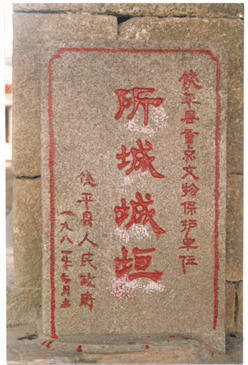 饶平县重点文物保护单位
所城城垣
饶平县人民政府
一九八一年